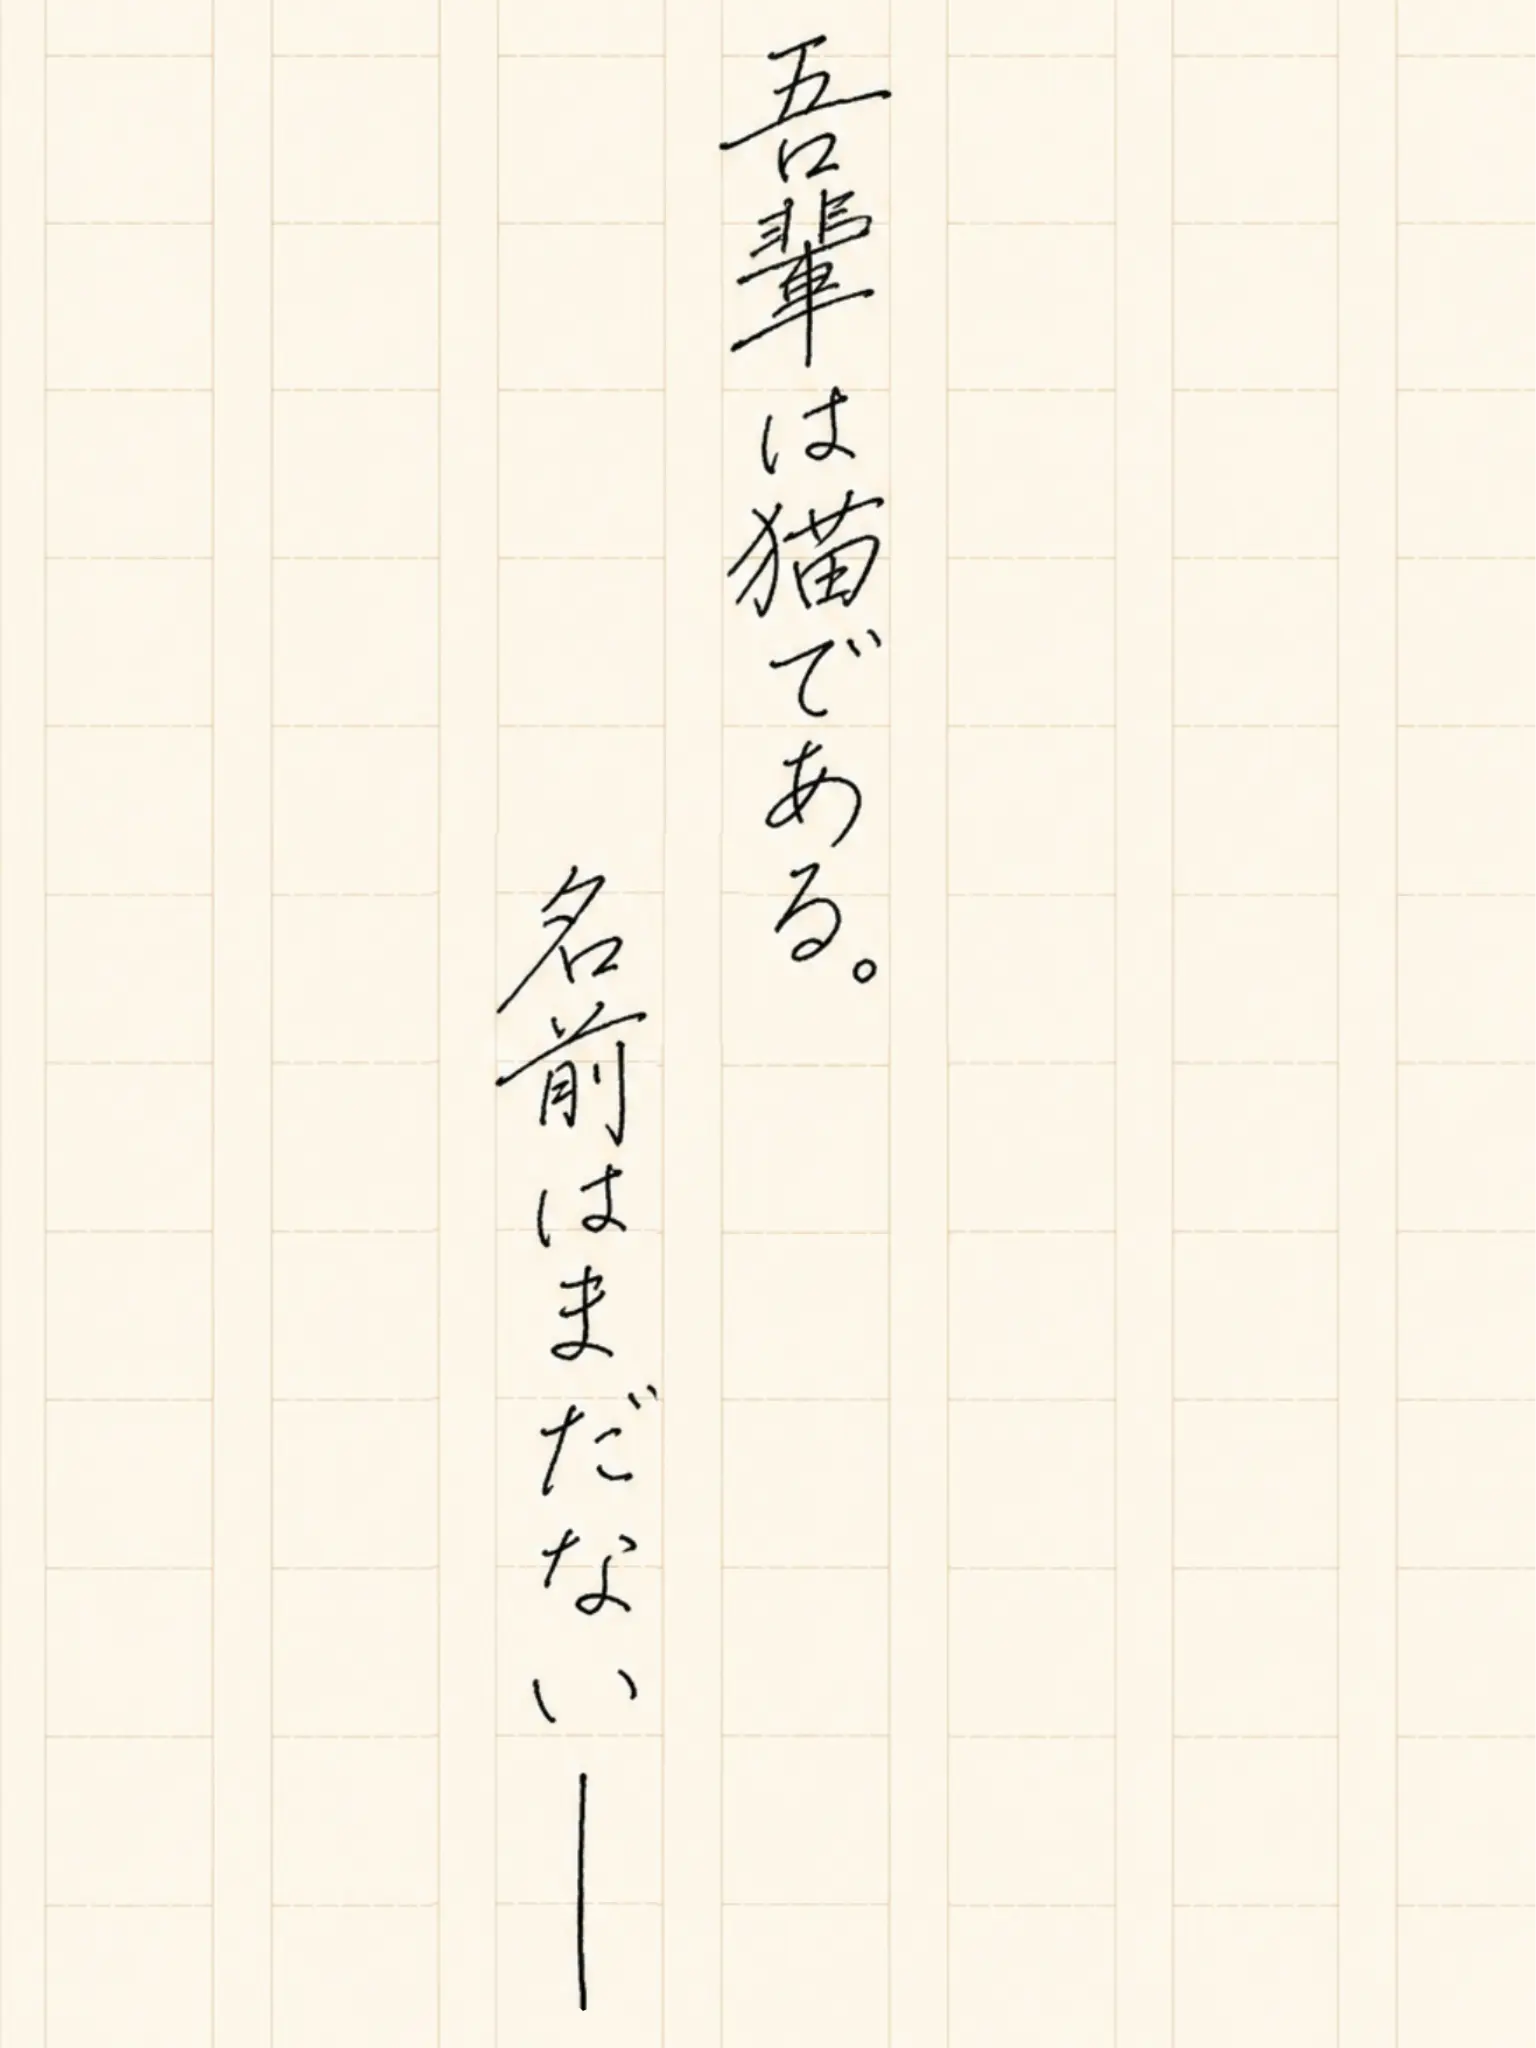 吾輩は猫である。
名前はまだない―